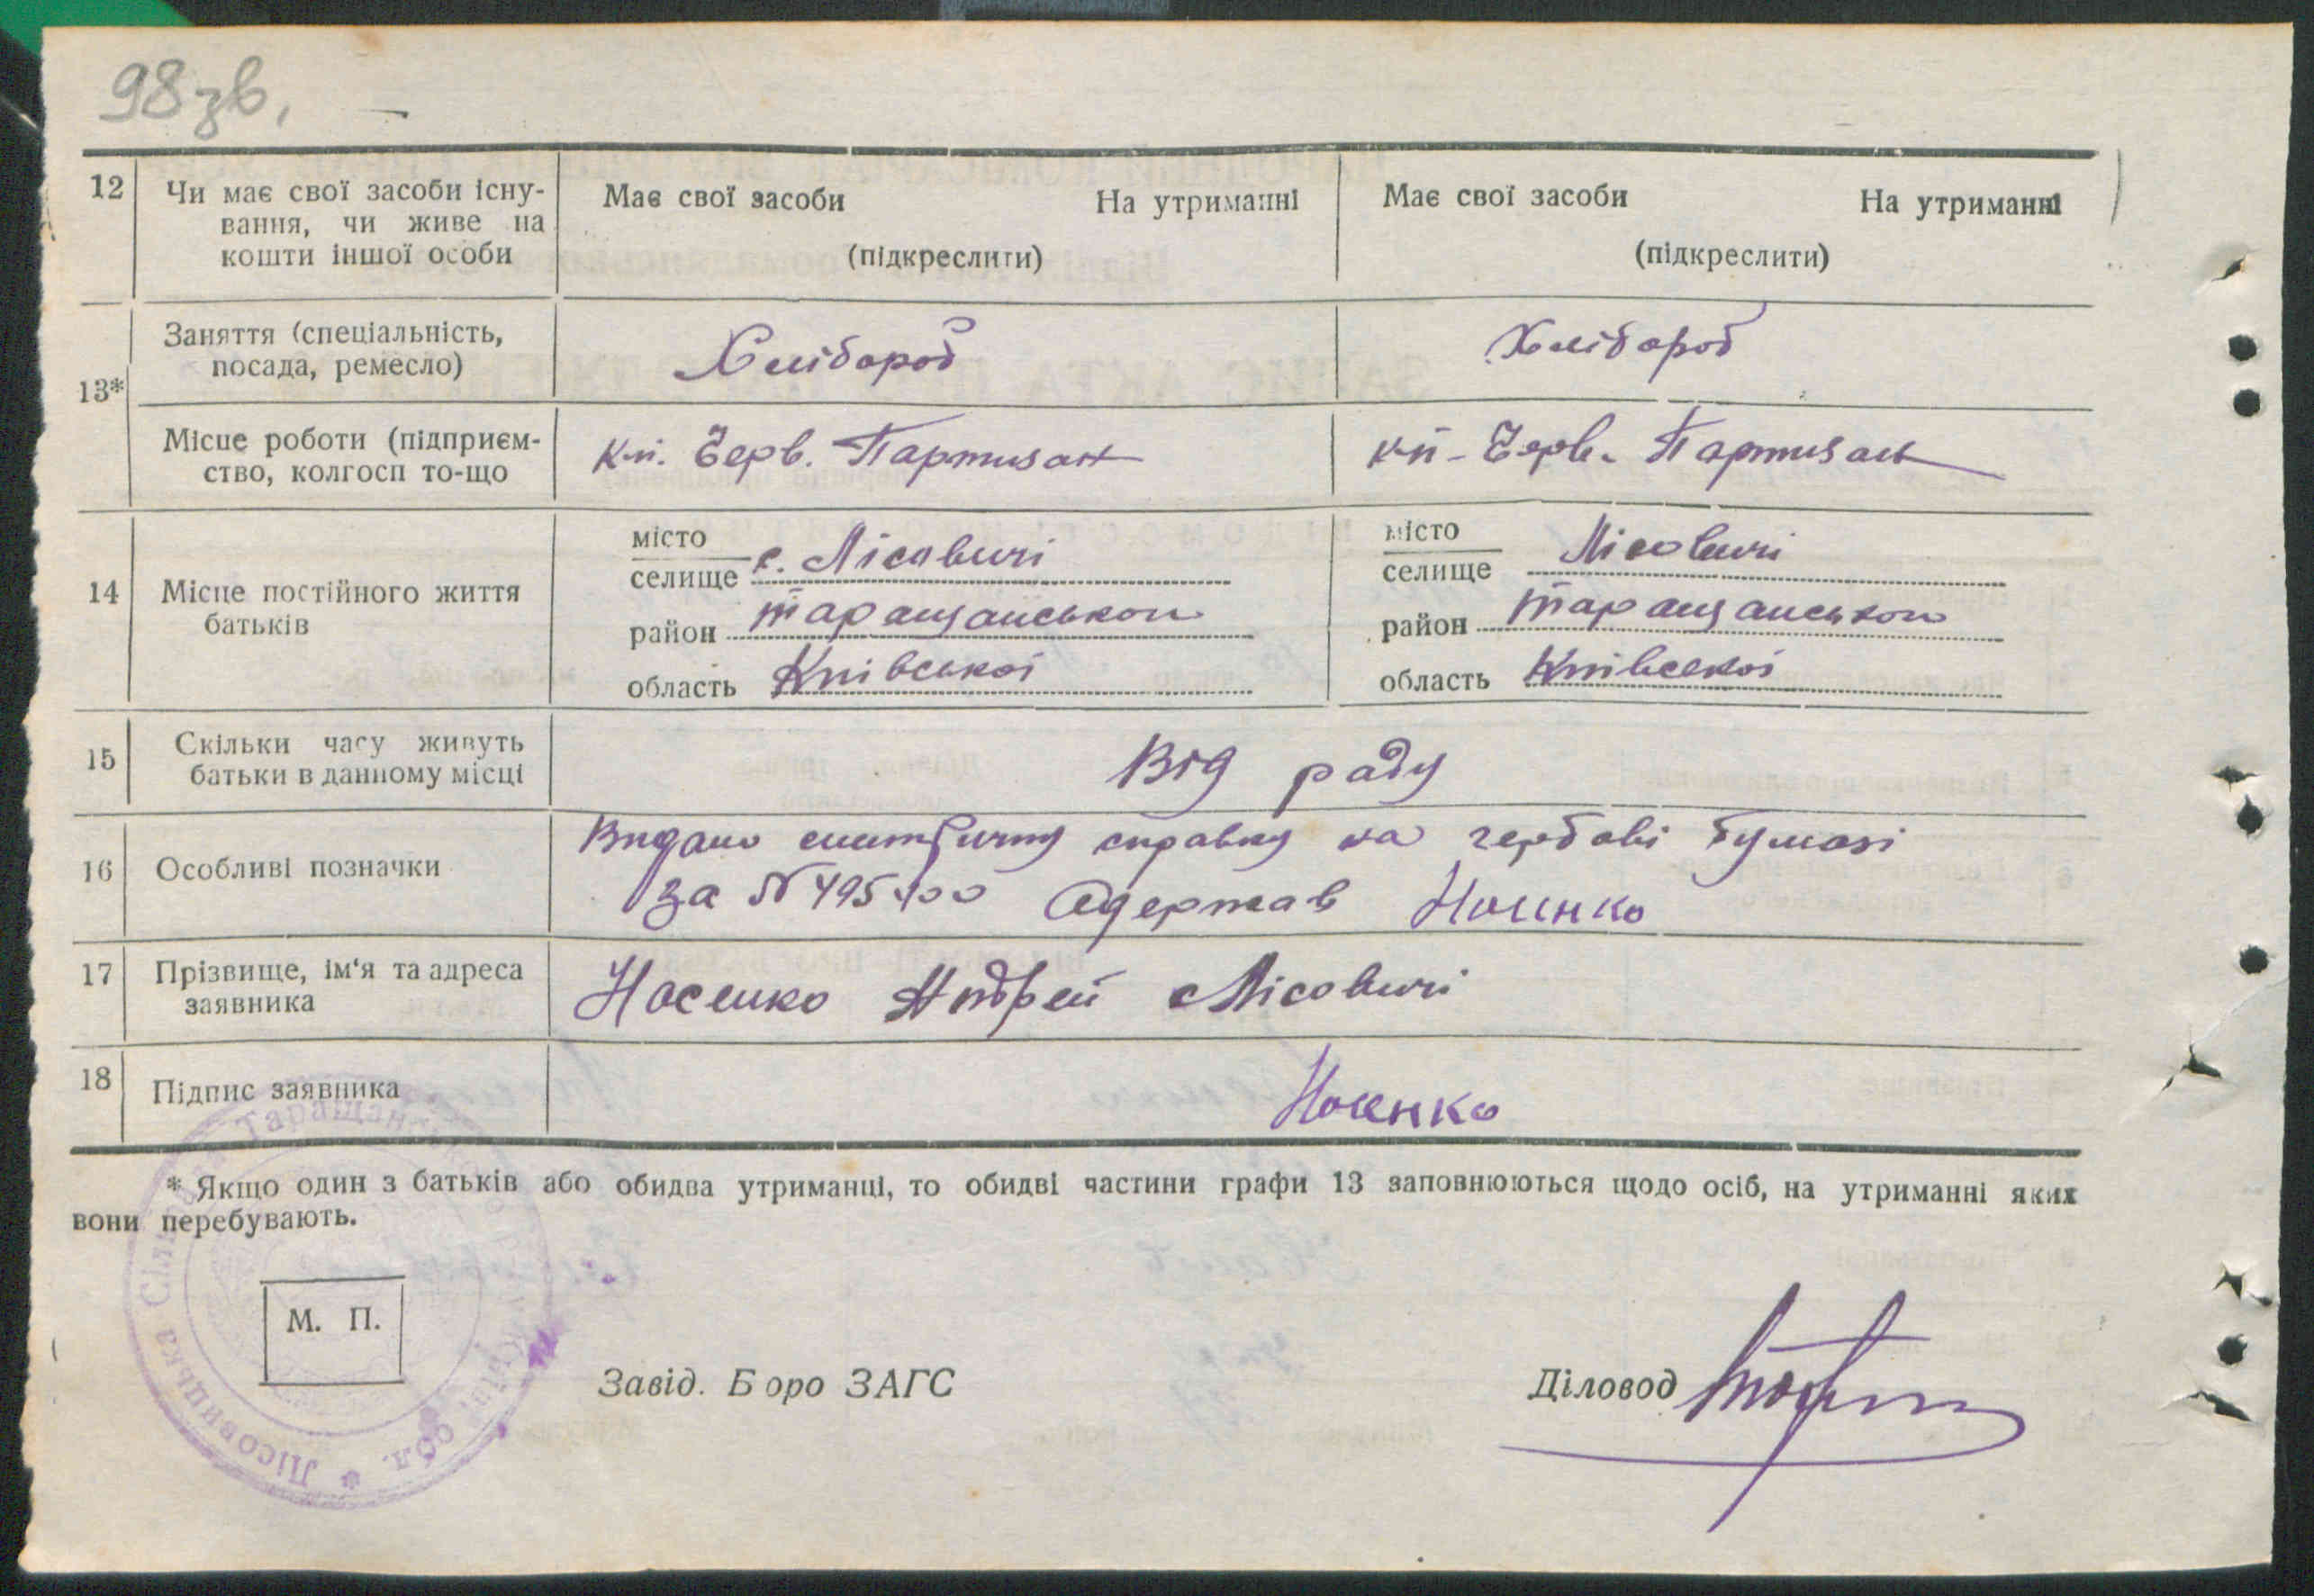 98зв.
12 Чи має свої засоби існу-
вання, чи живе на
кошти іншої особи
Має свої засоби На утриманні
(підкреслити)
Має свої засоби На утриманні
(підкреслити)
13*
Заняття (спеціальність,
посада, ремесло)
Хлібороб
Хлібороб
Місце роботи (підприєм-
ство, колгосп то-що
к-п. Черв. Партизан
к-п - Черв. Партизан
14 Місце постійного життя
батьків
місто
селище с. Лісовичі
район таращанського
область Київської
місто
селище Лісовичі
район таращанського
область Київської
15 Скільки часу живуть
батьки в данному місці
Від роду
16 Особливі позначки
Видано справку на гербові бумазі
за № Одержав Носенко
17 Прізвище, ім'я та адреса
заявника
Носенко Андрей Лісовичі
18 Підпис заявника
Носенко
* Якщо один з батьків або обидва утриманці, то обидві частини графи 13 заповнюються щодо осіб, на утриманні яких
вони перебувають.
М. П.
Завід. Бюро ЗАГС
Діловод
Лісовицька Таращан обл.